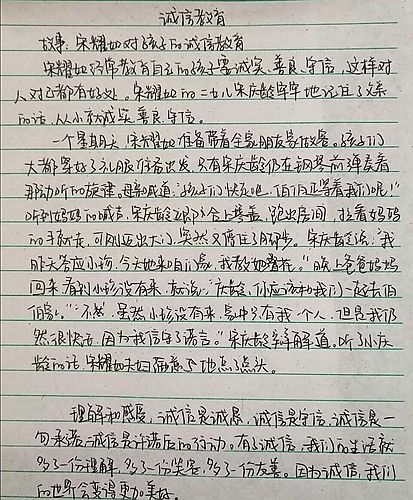 诚信教育
故事:宋耀如对孩子的诚信教育
宋耀如经常教育自己的孩子要诚实、善良、守信,这样对
人对己都有好处。宋耀如的二女儿宋庆龄牢牢地记住了父亲
的话,从小就诚实、善良、守信。
一个星期天,宋耀如准备带着全家去朋友家做客。孩子们
大都穿好了礼服准备出发,只有宋庆龄仍在钢琴前弹奏着
那动听的旋律。母亲喊道:"孩子们快走吧,伯伯正等着我们呢!"
听到妈妈的喊声,宋庆龄立即合上琴盖,跑出房间,拉着妈妈
的手就走,可刚迈出大门,突然又停住了脚步。宋庆龄说:"我
昨天答应小珍,今天她来咱们家,我教她叠花。"晚上爸爸妈妈
回来,看到小珍没有来,就说:"庆龄,你应该和我们一起去伯
伯家。""不然,虽然小珍没有来,家中只有我一个人,但是我仍
然很快活,因为我信守了诺言。"宋庆龄辩解道。听了小庆
龄的话,宋耀如夫妇满意地点了点头。
理解和感恩,诚信是诚恳,诚信是守信,诚信是一
句承诺,诚信是许诺后的行动。有了诚信,我们的生活就
多了一份理解,多了一份笑容,多了一份友善。因为诚信,我们
的世界会变得更加美好。